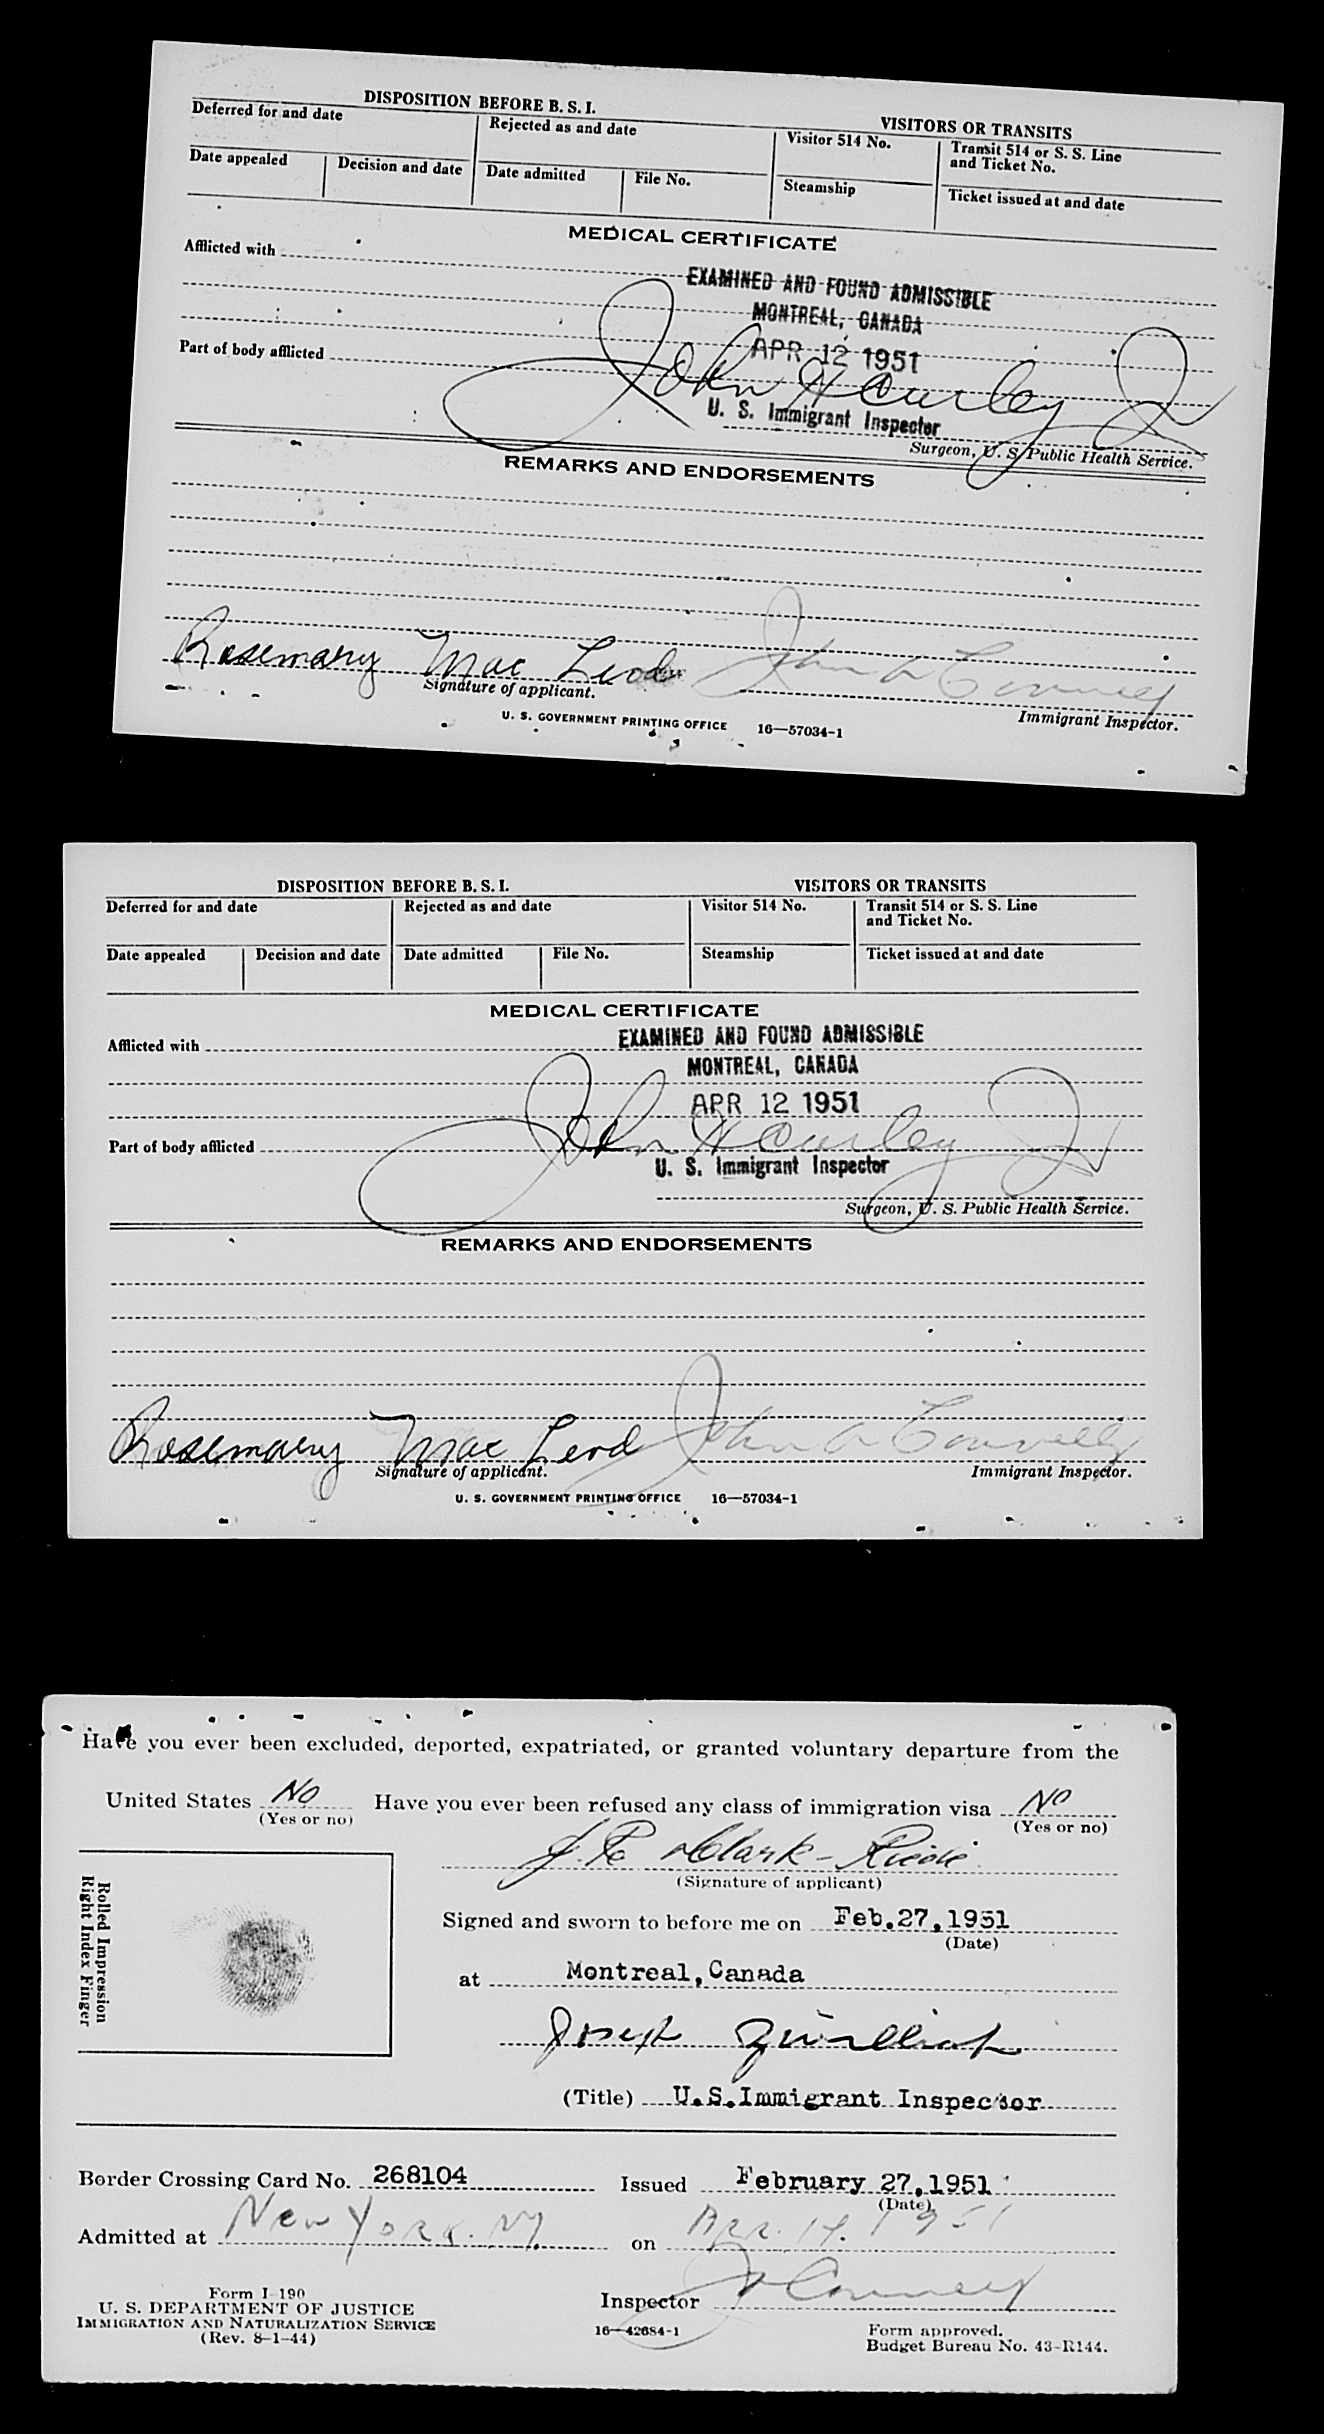 DISPOSITION BEFORE B. S. I.
VISITORS OR TRANSITS
Deferred for and date
Rejected as and date
Visitor 514 No.
Transit 514 or S. S. Line
and Ticket No.
Date appealed
Decision and date
Date admitted
File No.
Steamship
Ticket issued at and date
MEDICAL CERTIFICATE
Afflicted with
EXAMINED AND FOUND ADMISSIBLE
MONTREAL, CANADA
APR 12 1951
Part of body afflicted
John H Curley Jr
U. S. Immigrant Inspector
Surgeon, U. S. Public Health Service.
REMARKS AND ENDORSEMENTS
Rosemary Mac Leod John A Connelly
Signature of applicant.
Immigrant Inspector.
U. S. GOVERNMENT PRINTING OFFICE 16—57034-1
DISPOSITION BEFORE B. S. I.
VISITORS OR TRANSITS
Deferred for and date
Rejected as and date
Visitor 514 No.
Transit 514 or S. S. Line
and Ticket No.
Date appealed
Decision and date
Date admitted
File No.
Steamship
Ticket issued at and date
MEDICAL CERTIFICATE
Afflicted with
EXAMINED AND FOUND ADMISSIBLE
MONTREAL, CANADA
APR 12 1951
Part of body afflicted
John H Curley Jr
U. S. Immigrant Inspector
Surgeon, U. S. Public Health Service.
REMARKS AND ENDORSEMENTS
Rosemary Mac Leod John A Connelly
Signature of applicant.
Immigrant Inspector.
U. S. GOVERNMENT PRINTING OFFICE 16—57034-1
Have you ever been excluded, deported, expatriated, or granted voluntary departure from the
United States No Have you ever been refused any class of immigration visa No
(Yes or no)
(Yes or no)
Clark-
(Signature of applicant)
Rolled Impression
Right Index Finger
Signed and sworn to before me on Feb.27,1951
(Date)
at Montreal,Canada
Joseph
(Title) U.S.Immigrant Inspector
Border Crossing Card No. 268104 Issued February 27,1951
(Date)
Admitted at New York. NY on Apr. 14. 1951
Form I-190
U. S. DEPARTMENT OF JUSTICE
IMMIGRATION AND NATURALIZATION SERVICE
(Rev. 8-1-44)
Inspector J A Connelly
16—42684-1
Form approved.
Budget Bureau No. 43-R144.